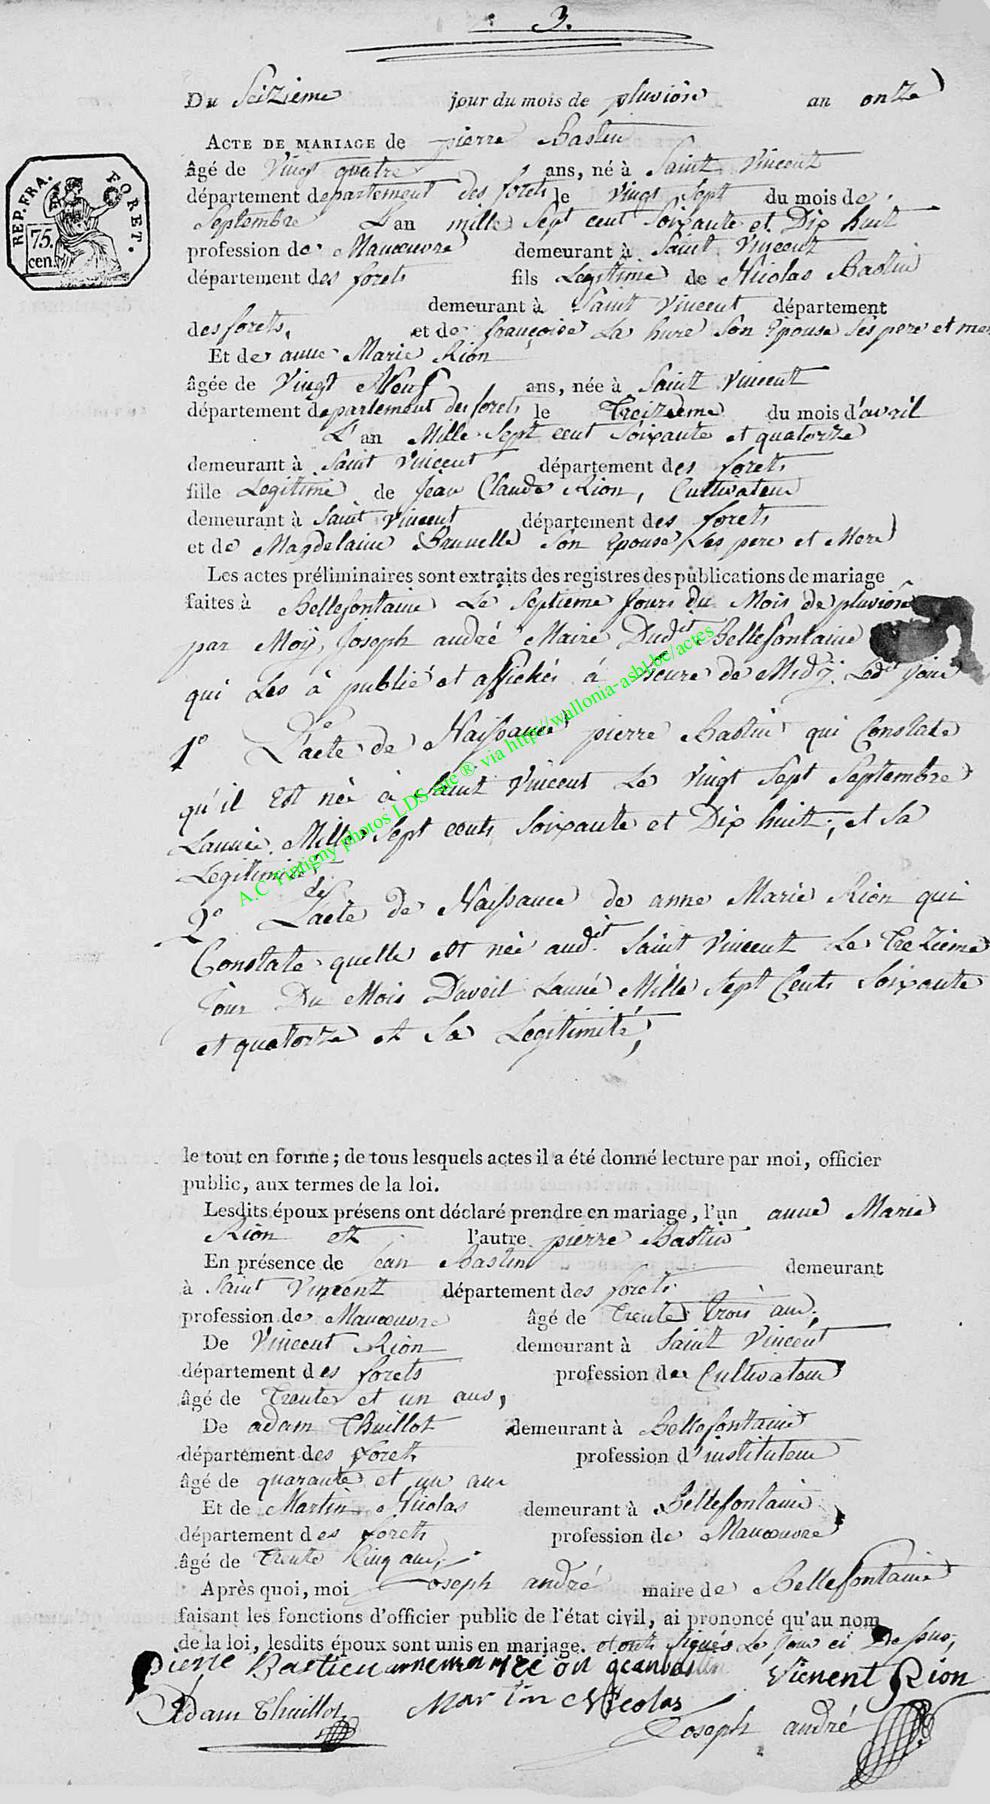 3.
Du Seizieme jour du mois de pluviose an onze
ACTE DE MARIAGE de pierre Bastin
âgé de Vingt quatre ans, né à Saint Vincent
département departement des forets le vingt Sept du mois de
Septembre L'an mille Sept cent Soixante et Dix huit
profession de Manœuvre demeurant à Saint Vincent
département des forets fils Legitime de Nicolas Bastin
demeurant à Saint Vincent département
des forets. et de françoise La hure Son Epouse Ses pere et mere
Et de anne Marie Rion
âgée de Vingt Neuf ans, née à Saint Vincent
département departement des forets le Treizieme du mois d'avril
L'an Mille Sept cent Soixante et quatorze
demeurant à Saint Vincent département des forets
fille Legitime de Jean Claude Rion, Cultivateur
demeurant à Saint Vincent département des forets
et de Magdelaine Bruvelle Son Epouse Ses pere et Mere
Les actes préliminaires sont extraits des registres des publications de mariage
faites à Bellefontaine Le Septieme Jour du Mois de pluviose
par Moÿ, Joseph andré Maire Dudet Bellefontaine
qui Les à publié et affichés à heure de Midÿ Ledet Jour
1° L'acte de Naissance pierre Bastin qui Constate
de
qu'il Est né à Saint Vincent Le Vingt Sept Septembre
L'année Mille Sept cents Soixante et Dix huit, et Sa
Legitimité,
2° L'acte de Naissance de anne Marie Rion qui
Constate quelle est née audit Saint Vincent Le Trezieme
Jour Du Mois Davril L'anné Mille Sept Cents Soixante
et quatorze et Sa Legitimité,
le tout en forme ; de tous lesquels actes il a été donné lecture par moi, officier
public, aux termes de la loi.
Lesdits époux présens ont déclaré prendre en mariage, l'un anne Marie
Rion et l'autre pierre Bastin
En présence de Jean Bastin demeurant
à Saint Vincent département des forets
profession de Manœuvre âgé de Trente trois ans,
De Vincent Rion demeurant à Saint Vincent
département des forets profession de Cultivateur
âgé de Trente et un ans,
De adam Thuillot demeurant à Bellefontaine
département des forets profession d'instituteur
âgé de quarante et un ans
Et de Martin Nicolas demeurant à Bellefontaine
département des forets profession de Manœuvre
âgé de Trente Cinq ans,
Après quoi, moi Joseph andré maire de Bellefontaine
faisant les fonctions d'officier public de l'état civil, ai prononcé qu'au nom
de la loi, lesdits époux sont unis en mariage. et ont Signés Le Jour ci Dessus,
Pierre Bastien anne marie rion jean bastin Vincent Rion
Adam Thuillot Martin Nicolas
Joseph andré
REP. FRA. FORET.
75. cen.
A.C Tintigny photos LDS site ® via http://wallonia-asbl.be/actes